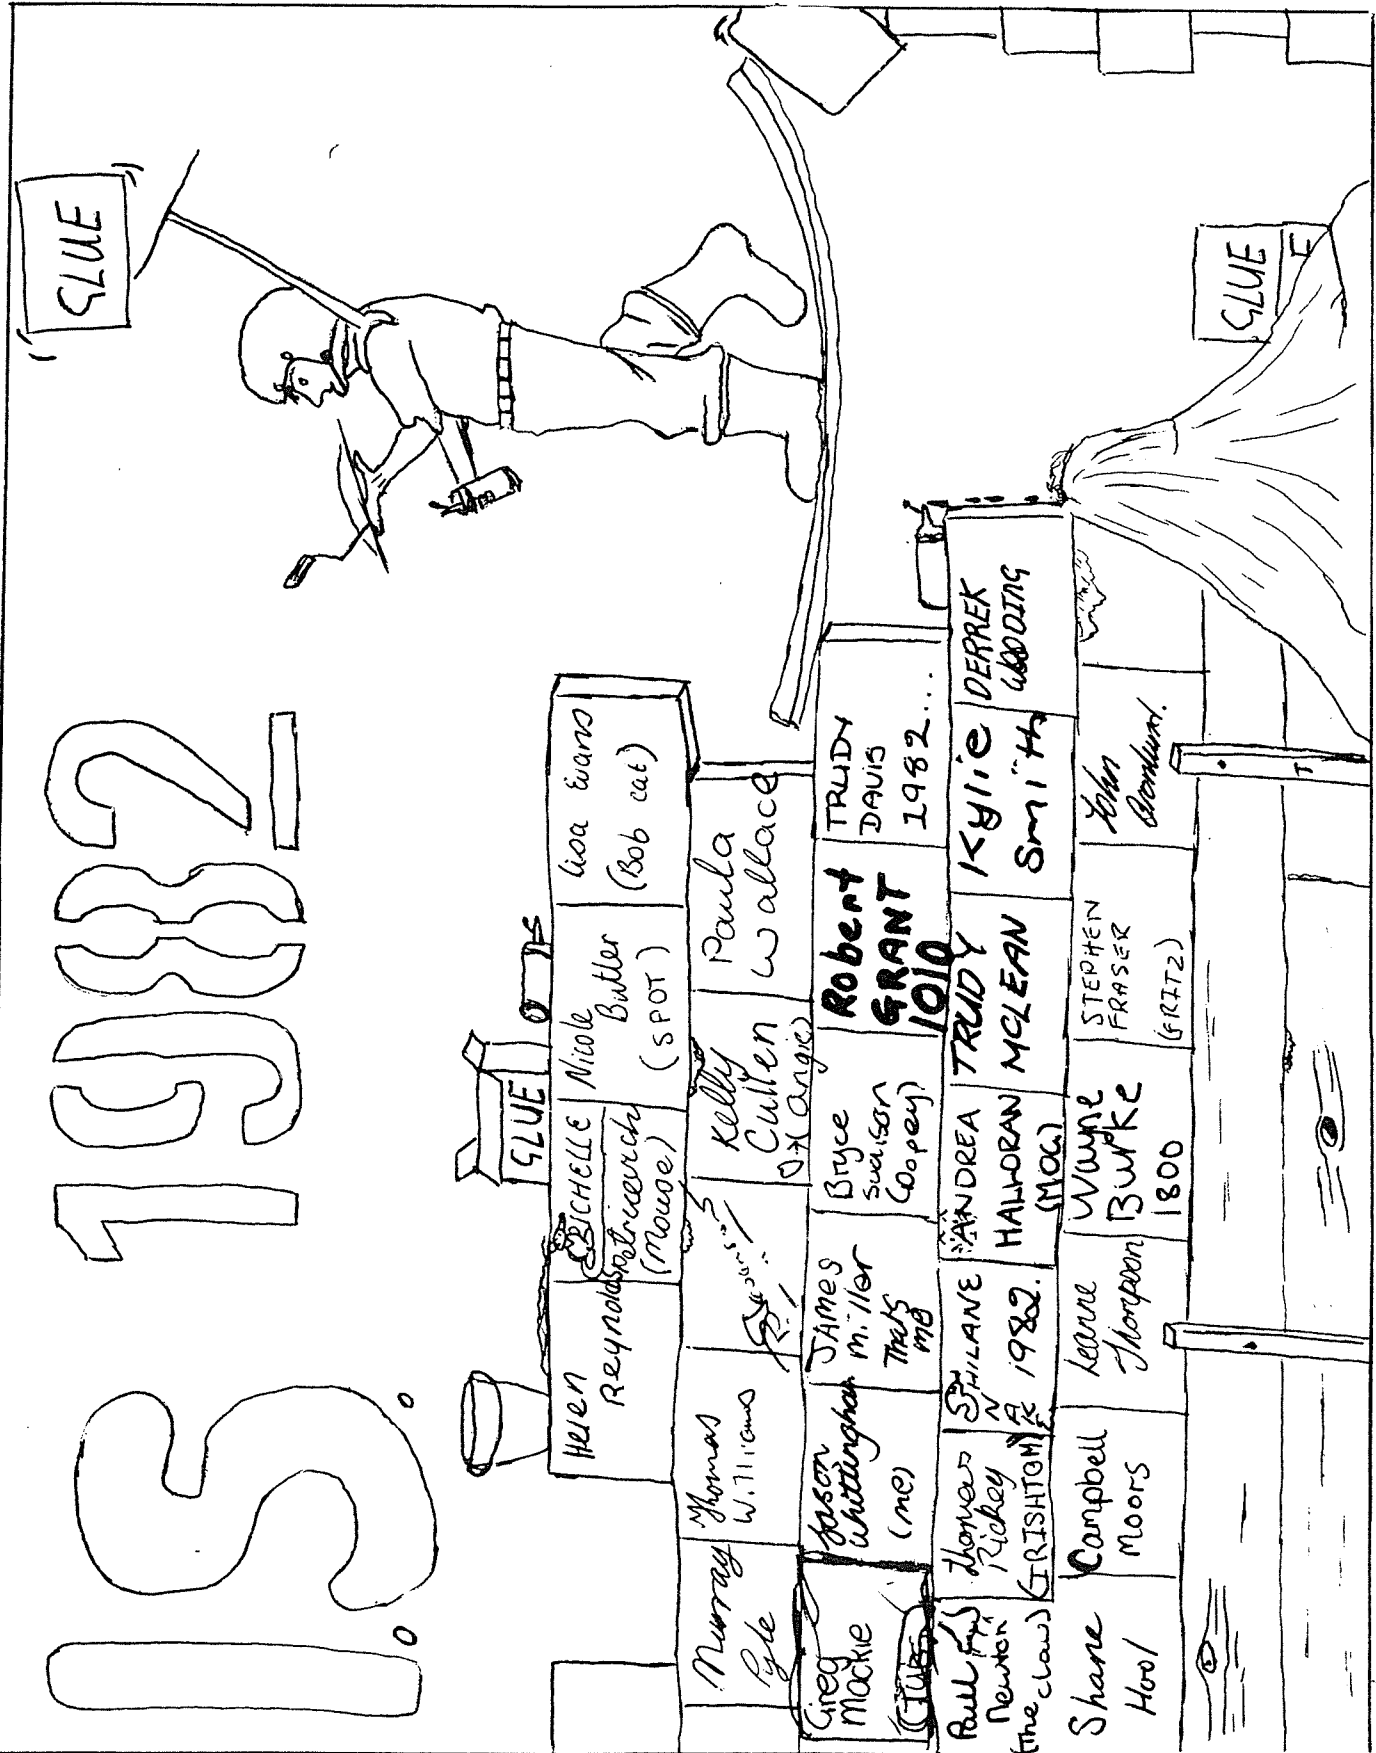 I.S. 1982
GLUE
GLUE
Helen
Reynolds
Nicole
Butler
(SPOT)
Lisa Evans
(Bob cat)
GLUE
Murray
Pyle
Thomas
Williams
Kelly
Cullen
(angie)
Paula
Wallace
Greg
Mackie
Jason
Whittingham
(me)
JAMES
miller
Thats
me
Bryce
(Coopey)
Robert
GRANT
1010
TRUDY
DAVIS
1982...
Paul
Newton
(The claw)
Thomas
Rickey
(IRISHTOM)
1982.
ANDREA
HALLORAN
(MOG)
TRUDY
MCLEAN
Kylie
Smith
DERREK
WOODING
Shane
Hool
Campbell
Moors
Leanne
Thompson
Wayne
Burke
1800
STEPHEN
FRASER
(FRITZ)
John